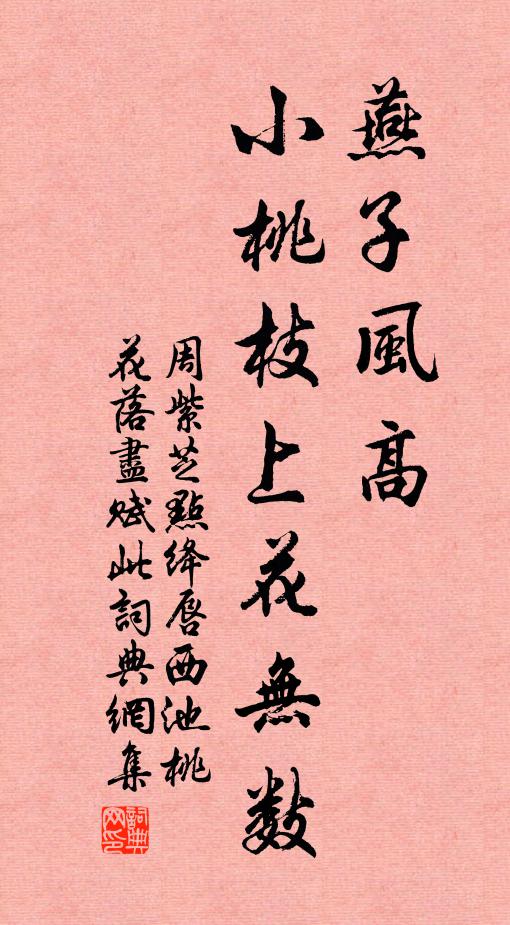 燕子風高
小桃枝上花無数
周紫芝點绛唇西池桃
花落盡赋此詞典網集
詞典网印